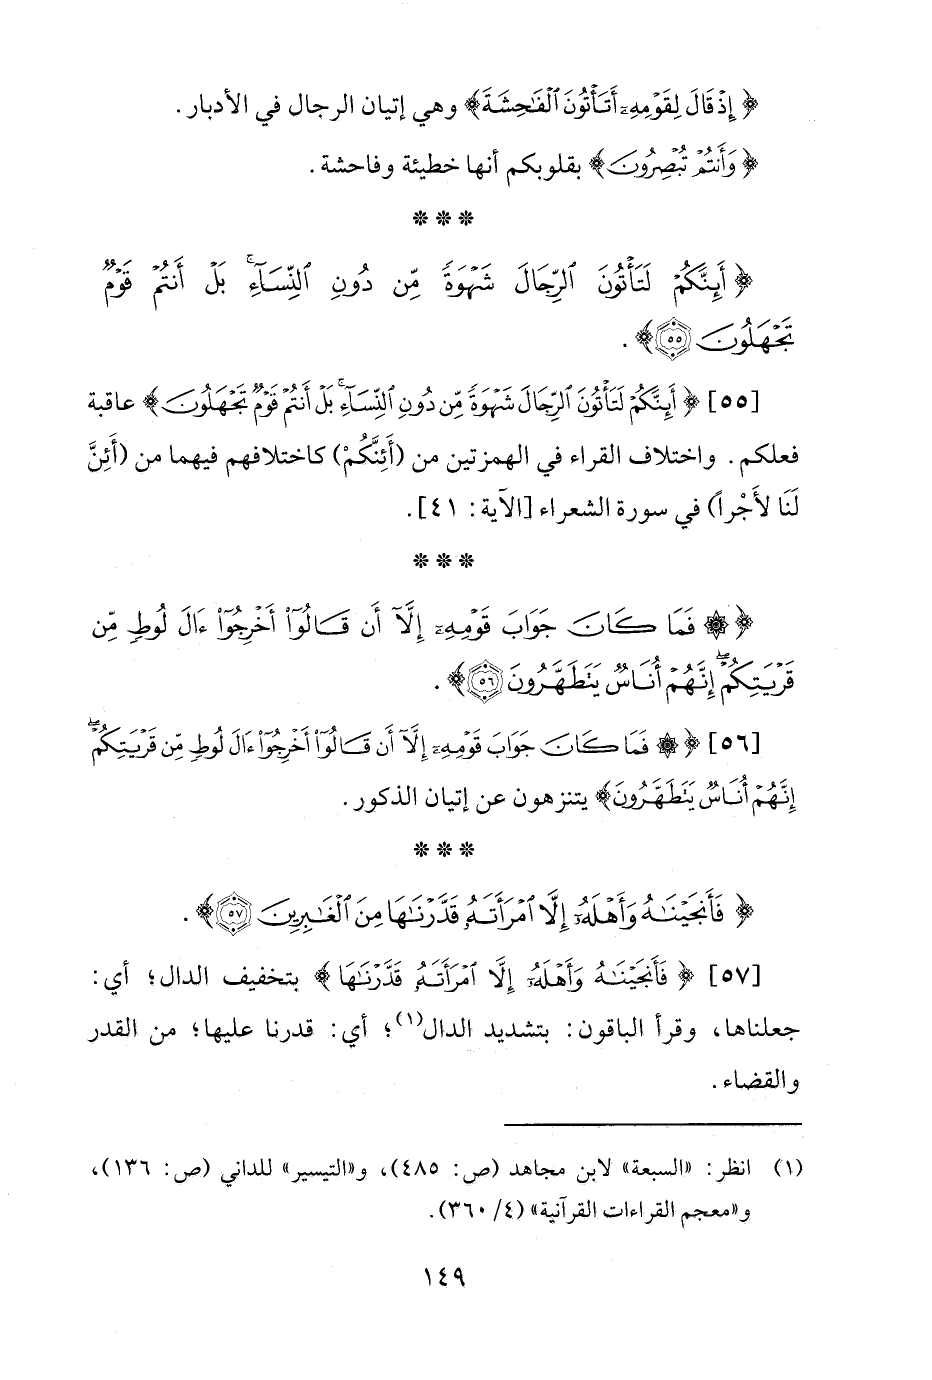 ﴿إِذْ قَالَ لِقَوْمِهِۦٓ أَتَأْتُونَ ٱلْفَٰحِشَةَ﴾ وهي إتيان الرجال في الأدبار.
﴿وَأَنتُمْ تُبْصِرُونَ﴾ بقلوبكم أنها خطيئة وفاحشة.
* * *
﴿أَئِنَّكُمْ لَتَأْتُونَ ٱلرِّجَالَ شَهْوَةً مِّن دُونِ ٱلنِّسَآءِ ۚ بَلْ أَنتُمْ قَوْمٌ
تَجْهَلُونَ ٥٥﴾.
[٥٥] ﴿أَئِنَّكُمْ لَتَأْتُونَ ٱلرِّجَالَ شَهْوَةً مِّن دُونِ ٱلنِّسَآءِ ۚ بَلْ أَنتُمْ قَوْمٌ تَجْهَلُونَ﴾ عاقبة
فعلكم. واختلاف القراء في الهمزتين من (أَئِنَّكُمْ) كاختلافهم فيهما من (أَئِنَّ
لَنَا لأَجْراً) في سورة الشعراء [الآية: ٤١].
* * *
﴿۞ فَمَا كَانَ جَوَابَ قَوْمِهِۦٓ إِلَّآ أَن قَالُوٓا۟ أَخْرِجُوٓا۟ ءَالَ لُوطٍ مِّن
قَرْيَتِكُمْ ۖ إِنَّهُمْ أُنَاسٌ يَتَطَهَّرُونَ ٥٦﴾.
[٥٦] ﴿۞ فَمَا كَانَ جَوَابَ قَوْمِهِۦٓ إِلَّآ أَن قَالُوٓا۟ أَخْرِجُوٓا۟ ءَالَ لُوطٍ مِّن قَرْيَتِكُمْ ۖ
إِنَّهُمْ أُنَاسٌ يَتَطَهَّرُونَ﴾ يتنزهون عن إتيان الذكور.
* * *
﴿فَأَنجَيْنَٰهُ وَأَهْلَهُۥٓ إِلَّا ٱمْرَأَتَهُۥ قَدَّرْنَٰهَا مِنَ ٱلْغَٰبِرِينَ ٥٧﴾.
[٥٧] ﴿فَأَنجَيْنَٰهُ وَأَهْلَهُۥٓ إِلَّا ٱمْرَأَتَهُۥ قَدَّرْنَٰهَا﴾ بتخفيف الدال؛ أي:
جعلناها، وقرأ الباقون: بتشديد الدال(١)؛ أي: قدرنا عليها؛ من القدر
والقضاء.
(١) انظر: «السبعة» لابن مجاهد (ص: ٤٨٥)، و«التيسير» للداني (ص: ١٣٦)،
و«معجم القراءات القرآنية» (٤/ ٣٦٠).
١٤٩